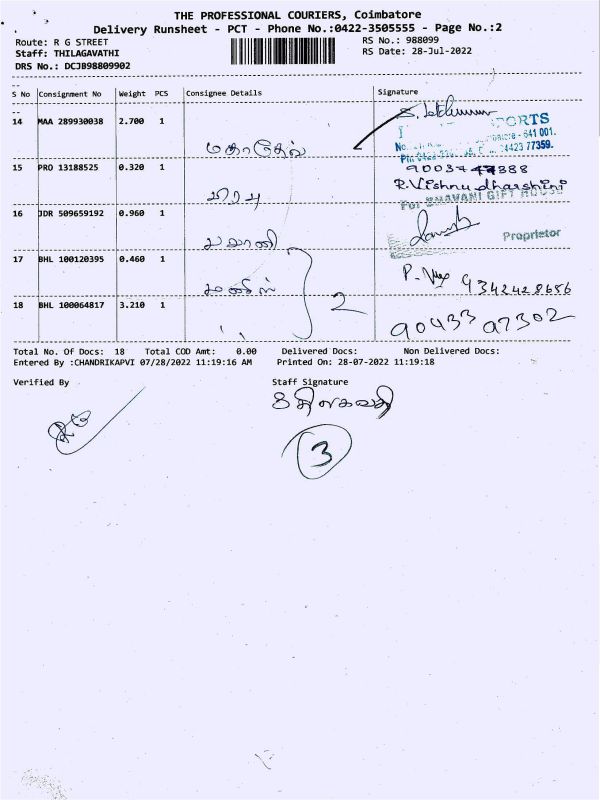 THE PROFESSIONAL COURIERS, Coimbatore
Delivery Runsheet - PCT - Phone No.:0422-3505555 - Page No.:2
Route: R G STREET
RS No.: 988099
Staff: THILAGAVATHI
RS Date: 28-Jul-2022
DRS No.: DCJ098809902
S No Consignment No Weight PCS Consignee Details Signature
14 MAA 289930038 2.700 1
PORTS
641 001.
15 PRO 13188525 0.320 1
R.Vishnu dharshini
For BHAVANI GIFT HOUSE
16 JDR 509659192 0.960 1
பவானி
Proprietor
17 BHL 100120395 0.460 1
2
9342428656
18 BHL 100064817 3.210 1
90433 07302
Total No. Of Docs: 18 Total COD Amt: 0.00 Delivered Docs: Non Delivered Docs:
Entered By :CHANDRIKAPVI 07/28/2022 11:19:16 AM Printed On: 28-07-2022 11:19:18
Verified By Staff Signature
3